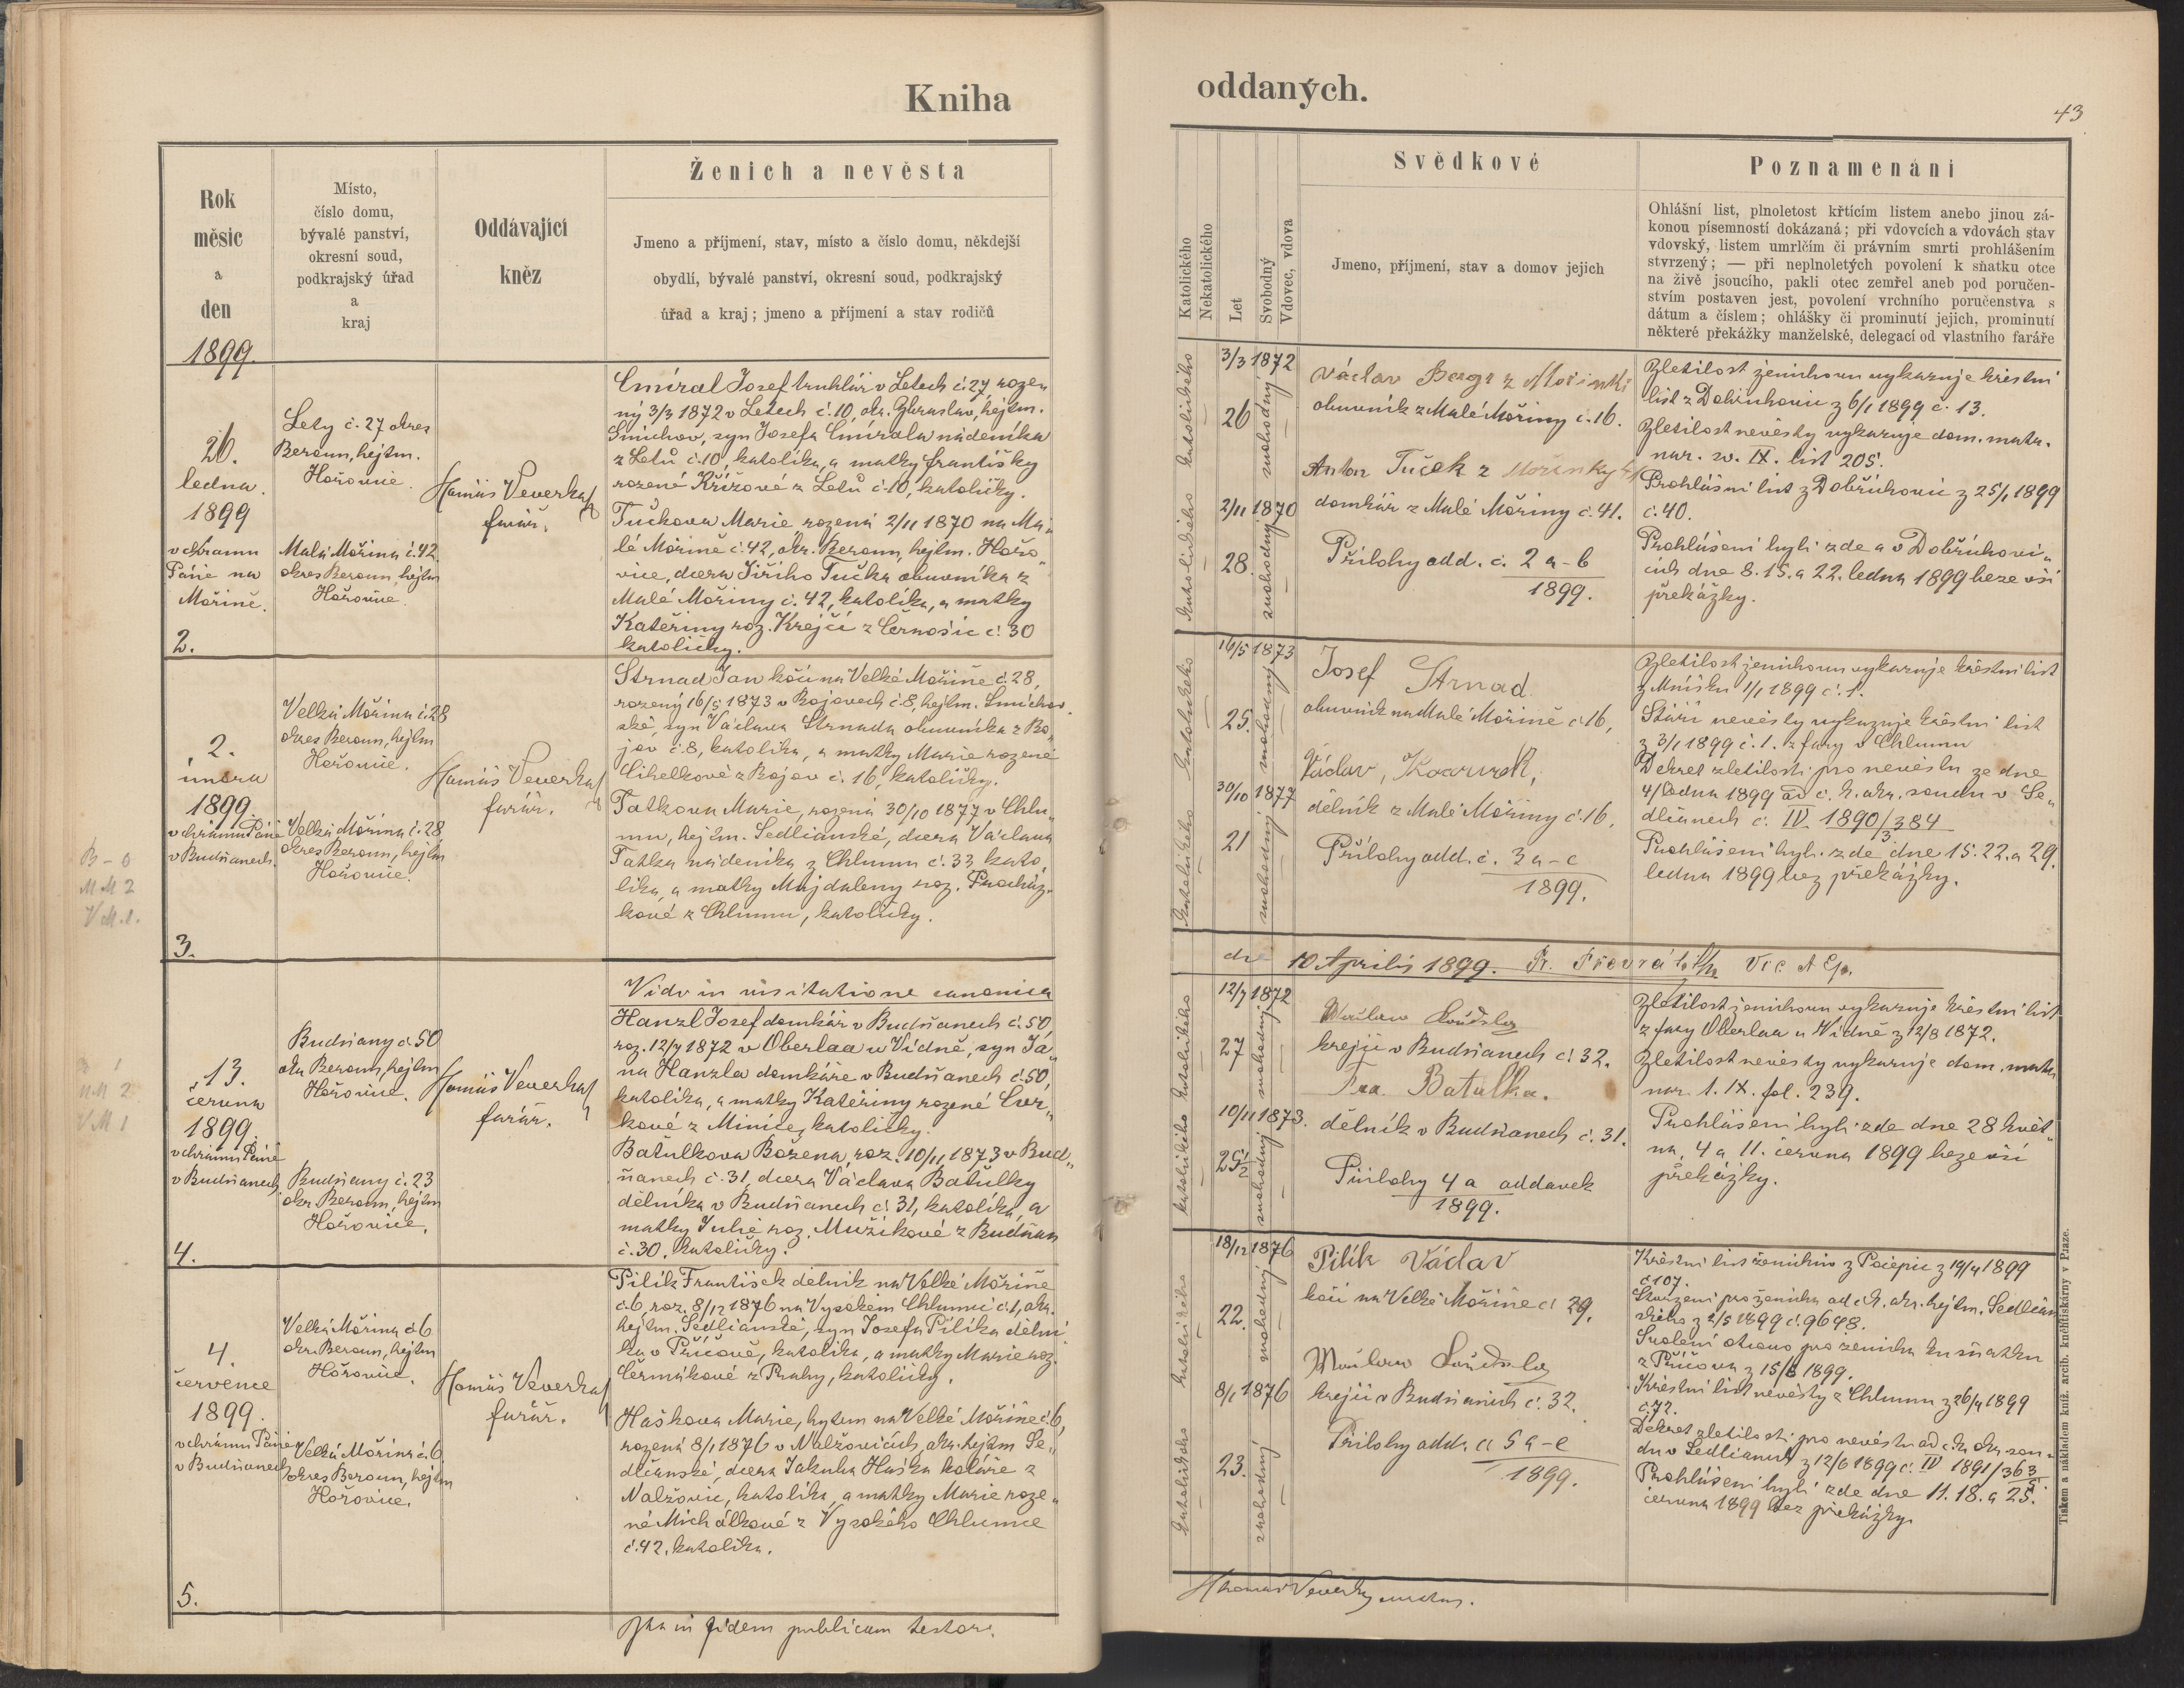 Kniha
oddaných.
43
Rok
měsíc
a
den
Místo,
číslo domu,
bývalé panství,
okresní soud,
podkrajský úřad
a
kraj
Oddávající
kněz
Ženich a nevěsta
Jmeno a příjmení, stav, místo a číslo domu, někdejší
obydlí, bývalé panství, okresní soud, podkrajský
úřad a kraj; jmeno a příjmení a stav rodičů
Katolického
Nekatolického
Let
Svobodný
Vdovec, vdova
Svědkové
Jmeno, příjmení, stav a domov jejich
Poznamenání
Ohlášní list, plnoletost křtícím listem anebo jinou zá-
konou písemností dokázaná; při vdovcích a vdovách stav
vdovský, listem umrlčím či právním smrti prohlášením
stvrzený; — při neplnoletých povolení k sňatku otce
na živě jsoucího, pakli otec zemřel aneb pod poručen-
stvím postaven jest, povolení vrchního poručenstva s
dátum a číslem; ohlášky či prominutí jejich, prominutí
některé překážky manželské, delegací od vlastního faráře
1899.
26.
ledna.
1899
v chrámu
Páně na
Mořině.
2.
Lety č. 27 okres
Beroun, hejtm.
Hořovice.
Malá Mořina č. 42
okres Beroun, hejtm
Hořovice.
Veverka
farář.
Cmíral Josef truhlář v Letech č. 27 rozen
ný 3/3 1872 v Letech č. 10, okr. Zbraslav, hejtm.
Smíchov, syn Josefa Cmírala nádeníka
z Letů č. 10, katolíka, a matky Františky
rozené Křížové z Letů č. 10, katoličky.
Tučkova Marie rozená 2/11 1870 na Ma-
lé Mořině č. 42, okr. Beroun, hejtm. Hořo-
vice, dcera Jiřího Tučka obuvníka z
Malé Mořiny č. 42, katolíka, a matky
Kateřiny roz. Krejčí z Černošic č. 30
katoličky.
katolického
3/3 1872
26
svobodný
katolického
2/11 1870
28
svobodný
Václav
obuvník z Malé Mořiny č. 16.
Anton Tuček z Mořinky
domkář z Malé Mořiny č. 41.
Přílohy odd. č. 2 a-b
1899.
Zletilost ženichovu vykazuje křestní
list z Dobřichovic z 6/1 1899 č. 13.
Zletilost nevěsty vykazuje dom. matr.
nar. sv. IX. list 205.
Prohlášní list z Dobřichovic z 25/1 1899
č. 40.
Prohlášeni byli zde a v Dobřichovi-
cích dne 8. 15. a 22. ledna 1899 beze vší
překážky.
2.
února
1899
v chrámu Páně
v Budňanech.
3.
Velká Mořina č. 28
okres Beroun, hejtm
Hořovice.
Velká Mořina č. 28
okres Beroun, hejtm
Hořovice.
Veverka
farář.
Strnad Jan kočí na Velké Mořině č. 28,
rozený 16/5 1873 v Bojovech č. 8, hejtm. Smíchov-
ské, syn Václava Strnada obuvníka z Bo-
jov č. 8, katolíka, a matky Marie rozené
Cihelkové z Bojov č. 16, katoličky.
Tatkova Marie, rozená 30/10 1877 v Chlu-
mu, hejtm. Sedlčanské, dcera Václava
Tatka nádeníka z Chlumu č. 33, kato-
líka, a matky Majdaleny roz. Procház-
kové z Chlumu, katoličky.
katolického
16/5 1873
25.
svobodný
katolického
30/10 1877
21
svobodný
Josef Strnad
obuvník na Malé Mořině č. 16,
Václav,
dělník z Malé Mořiny č. 16.
Přílohy odd. č. 3 a-c
1899.
Zletilost ženichovu vykazuje křestní list
z Mníšku 1/1 1899 č. 1.
Stáří nevěsty vykazuje křestní list
z 3/1 1899 č. 1. z fary v Chlumu
Dekret zletilosti pro nevěstu ze dne
4/ ledna 1899 od c. k. okr. soudu v Se-
dlčanech č. IV. 1890/384
3
Prohlášeni byli zde dne 15. 22. a 29.
ledna 1899 bez překážky.
Vidi in visitatione canonica
die 10 Aprilis 1899.
13.
června
1899.
v chrámu Páně
v Budňanech
4.
Budňany č. 50
okr. Beroun, hejtm
Hořovice.
Budňany č. 23
okr. Beroun, hejtm
Hořovice.
Veverka
farář.
Hanzl Josef domkář v Budňanech č. 50,
roz. 12/7 1872 v Oberlaa u Vídně, syn Ja-
na Hanzla domkáře v Budňanech č. 50,
katolíka, a matky Kateřiny rozené
kové z Minic, katoličky.
Batulkova Božena, roz. 10/11 1873 v Bud-
ňanech č. 31, dcera Václava Batulky
dělníka v Budňanech č. 31, katolíka, a
matky Julie roz. Mužíkové z Budňan
č. 30. katoličky.
katolického
12/7 1872
27
svobodný
katolického
10/11 1873.
25 1/2
svobodný
krejčí v Budňanech č. 32.
Fra. Batulka.
dělník v Budňanech č. 31.
Přílohy 4 a oddavek
1899.
Zletilost ženichovu vykazuje křestní list
z fary Oberlaa u Vídně z 12/8 1872.
Zletilost nevěsty vykazuje dom. matr.
nar. 1. IX. fol. 239.
Prohlášeni byli zde dne 28 květ-
na, 4 a 11. června 1899 beze vší
překážky.
4.
července
1899.
v chrámu Páně
v Budňanech
5.
Velká Mořina č. 6
okr. Beroun, hejtm
Hořovice.
Velká Mořina č. 6
okres Beroun, hejtm
Hořovice.
Veverka
farář.
Pilík František dělník na Velké Mořině
č. 6, roz. 8/12 1876 na Vysokém Chlumci č. 1, okr.
hejtm. Sedlčanské, syn Josefa Pilíka dělní
ka v Příčově, katolíka, a matky Marie roz.
Čermákové z Prahy, katoličky.
Haškova Marie, bytem na Velké Mořině č. 6,
rozená 8/1 1876 v Nalžovicích, okr. hejtm Se-
dlčanské, dcera Jakuba Haška koláře z
Nalžovic, katolíka, a matky Marie roze-
né Michálkové z Vysokého Chlumce
č. 42. katolíka.
katolického
18/12 1876
22.
svobodný
katolického
8/1 1876
23.
svobodný
Pilík Václav
kočí na Velké Mořině č. 29.
krejčí v Budňanech č. 32.
Přílohy odd. č. 5 a-e
1899.
Křestní list ženichův z Počepic z 19/4 1899
č. 107.
pro ženicha od c. k. okr. hejtm. Sedlčan
ského z 2/5 1899 č. 9648.
Svolení otcovo pro ženicha ku sňatku
z Příčova z 15/6 1899.
Křestní list nevěsty z Chlumu z 26/4 1899
č. 72.
Dekret zletilosti pro nevěstu od c. k. okr. sou-
du v Sedlčanech z 12/6 1899 č. IV 1891/363
5.
Prohlášeni byli zde dne 11. 18. a 25.
června 1899 bez překážky.
Ita in fidem publicam testor.
Tiskem a nákladem kníž. arcib. knihtiskárny v Praze.